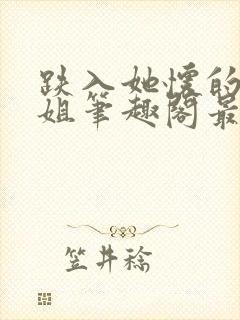 跌入她怀的
姐笔趣阁最
笠井稔